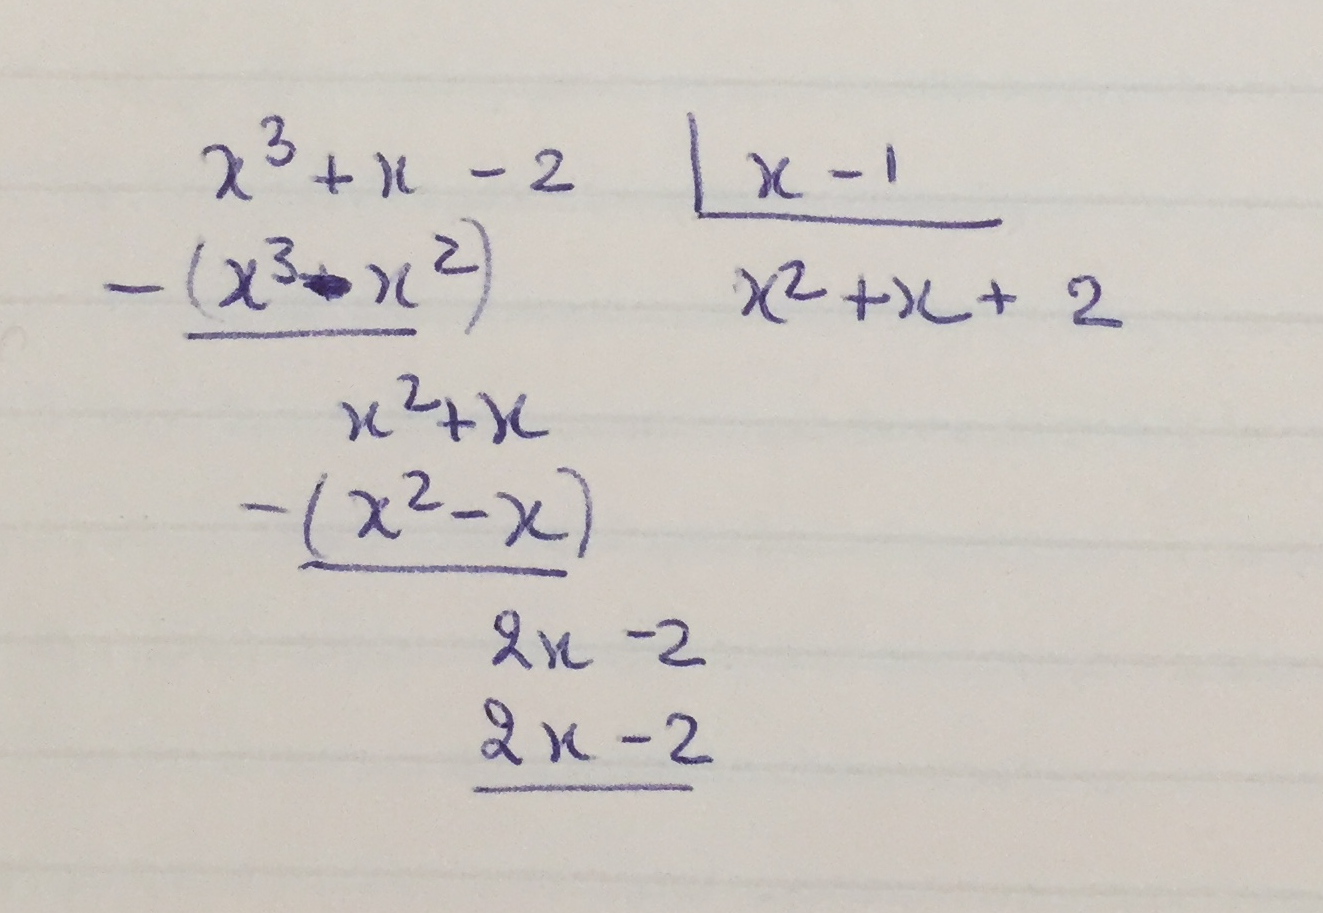 x³ + x - 2 | x - 1
-(x³ - x²) x² + x + 2
x² + x
-(x² - x)
2x - 2
2x - 2